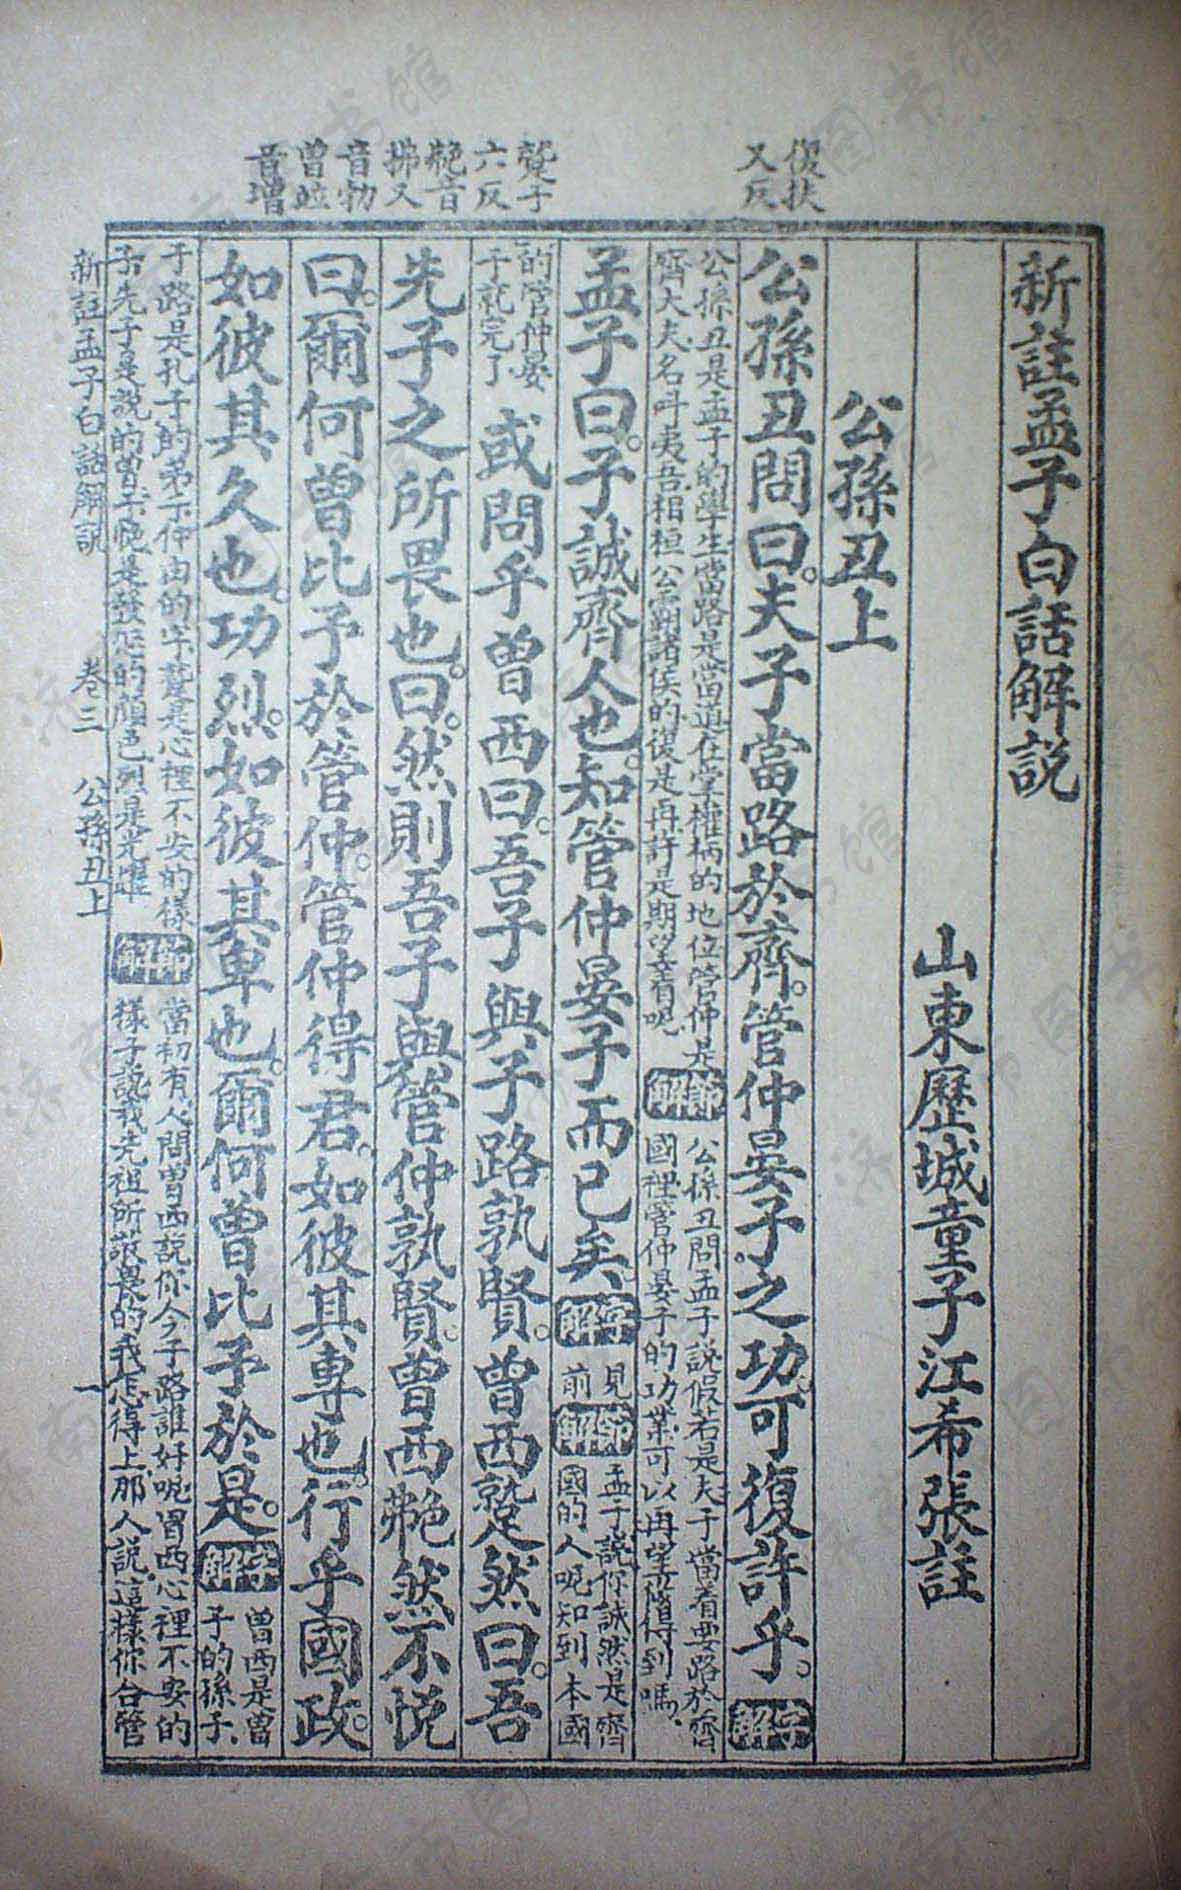 復扶
又反
蹵子
六反
艴音
拂又
音勃
曾並
音增
新註孟子白話解説
山東歷城童子江希張註
公孫丑上
公孫丑問曰。夫子當路於齊。管仲晏子之功。可復許乎。字解
公孫丑是孟子的學生當路是當道在掌權柄的地位管仲是
齊大夫名叫夷吾相桓公霸諸侯的復是再許是期望
節解
公孫丑問孟子説假若是夫子當着要路於齊
國裡管仲晏子的功業可以再望得到嗎、
孟子曰。子誠齊人也。知管仲晏子而已矣。字解
見
前
節解
孟子説你誠然是齊
國的人呢知到本國
的管仲晏
子就完了
或問乎曾西曰。吾子與子路孰賢。曾西蹵然曰。吾
先子之所畏也。曰。然則吾子與管仲孰賢。曾西艴然不悦
曰。爾何曾比予於管仲。管仲得君。如彼其專也。行乎國政。
如彼其久也。功烈。如彼其卑也。爾何曾比予於是。字解
曾西是曾
子的孫子、
子路是孔子的弟子仲由的字蹵是心裡不安的樣
子先子是説的曾子艴是發怒的顔色烈是光
節解
當初有人問曾西説你合子路誰好呢曾西心裡不安的
樣子説我先祖所敬畏的我怎得上那人説這樣你合管
新註孟子白話解説
卷三
公孫丑上
一